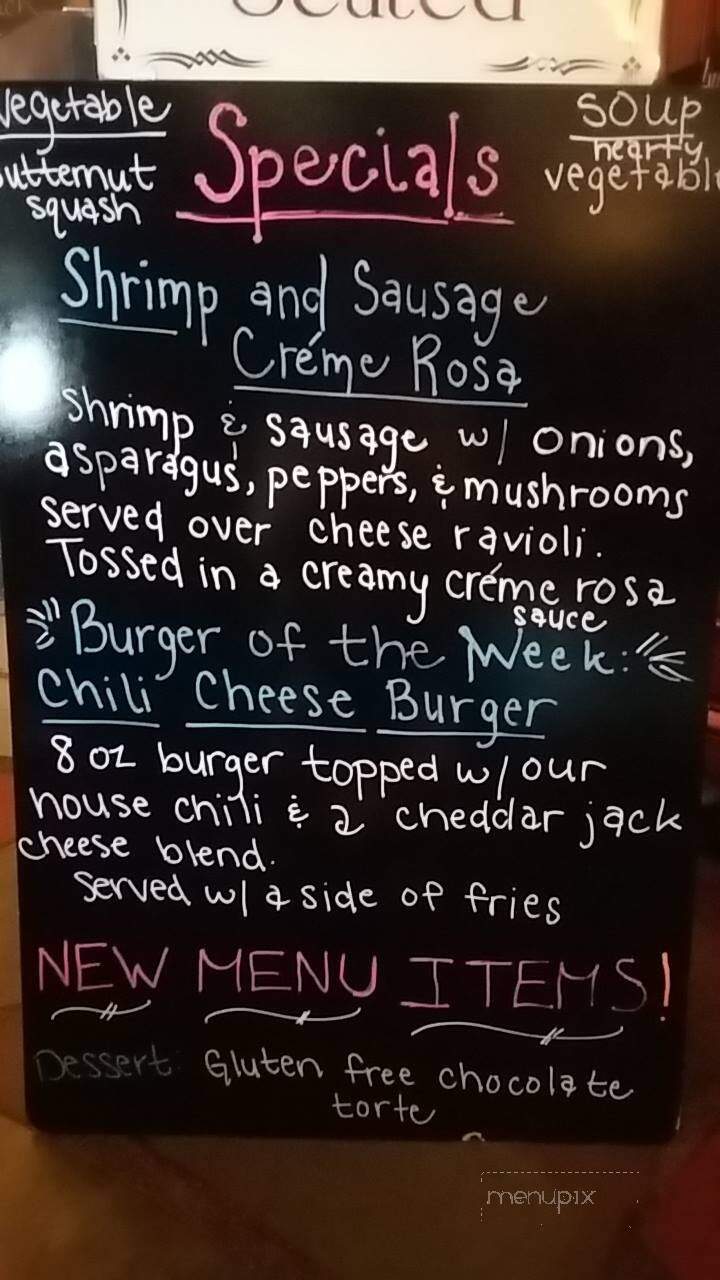 Seated
vegetable
butternut
squash
Specials
soup
hearty
vegetable
Shrimp and Sausage
Créme Rosa
Shrimp & sausage w/ onions,
asparagus, peppers, & mushrooms
served over cheese ravioli.
Tossed in a creamy créme rosa
sauce
Burger of the Week:
Chili Cheese Burger
8 oz burger topped w/ our
house chili & a cheddar jack
cheese blend.
Served w/ a side of fries
NEW MENU ITEMS!
Dessert: Gluten free chocolate
torte
menupix